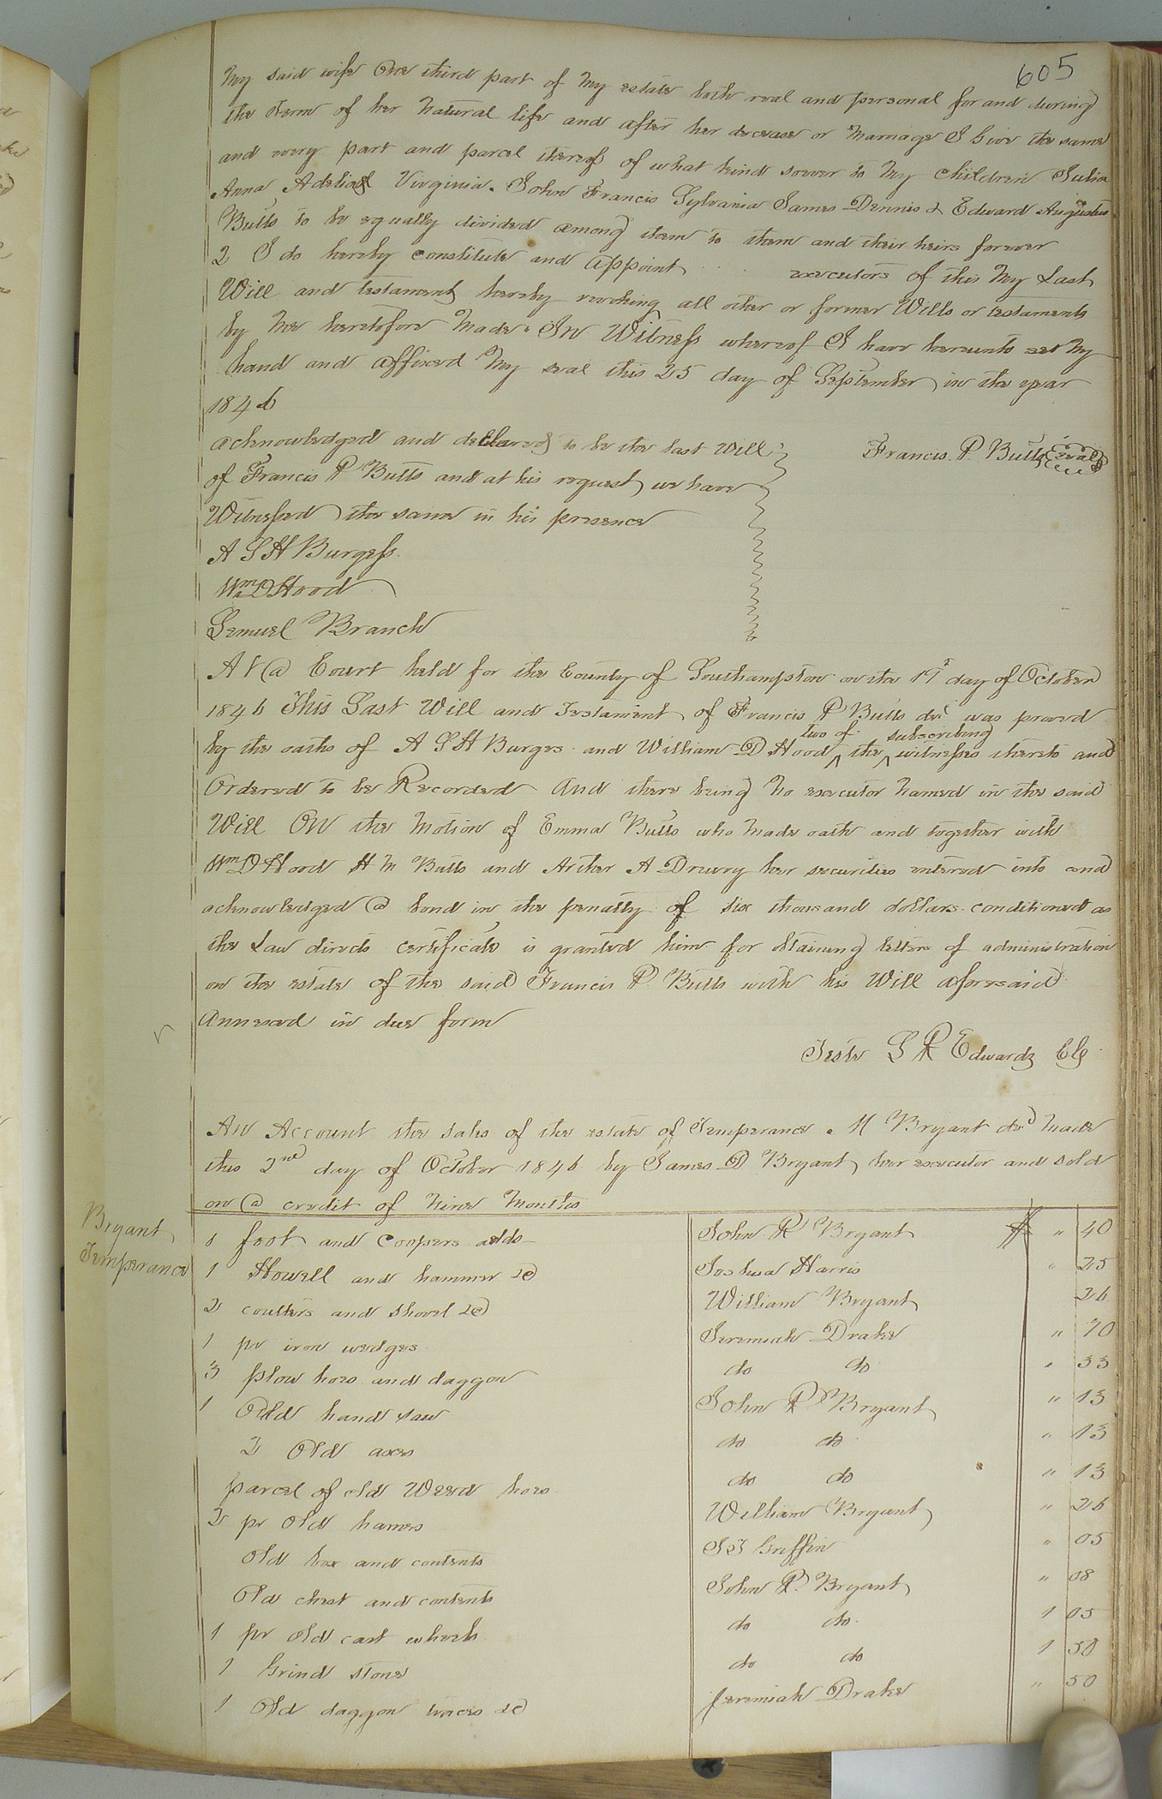 605
My said wife One third part of My estate both real and personal for and during
the Term of her Natural life and after her decease or Marriage I Give the same
and every part and parcel thereof of what kind soever to My Children Julia
Anna Adelia Virginia John Francis Sylvania James Dennis & Edward Augustus
Butts to be equally divided among them to them and their heirs forever
2 I do hereby Constitute and Appoint executors of this My Last
Will and testament hereby revoking all other or former Wills or testaments
by Me heretofore Made. In Witness whereof I have hereunto set My
hand and affixed My seal this 25 day of September in the year
1846
acknowledged and declared to be the last Will
Francis P. Butts Seal
of Francis P Butts and at his request we have
Witnessed the same in his presence
A S H Burgess.
Wm D Hood
Lemuel Branch
At a Court held for the County of Southampton on the 19th day of October
1846 This Last Will and Testament of Francis P Butts decd was proved
by the oaths of A S H Burges and William D Hood two of the subscribing witnesses thereto and
Ordered to be Recorded And there being No executor Named in the said
Will On the Motion of Emma Butts who Made oath and together with
Wm D Hood H M Butts and Arther A Drewry her securities entered into and
acknowledged a bond in the penalty of six thousand dollars conditioned as
the Law directs certificate is granted him for obtaining letters of administration
on the estate of the said Francis P. Butts with his Will aforesaid
Annexed in due form
Teste L R Edwards Clk
An Account the Sales of the estate of Temperance M Bryant decd Made
this 2nd day of October 1846 by James D Bryant her executor and sold
on a credit of Nine Months
Bryant
Temperance
1 foot and Coopers adds John R Bryant $ " 40
1 Howell and hammer &c Joshua Harris " 25
2 coulters and Shovel &c William Bryant 26
1 pr iron wedges Jeremiah Drake " 70
3 plow hoes and daggon do do " 33
1 Old hand saw John R Bryant " 13
2 Old axes do do " 13
parcel of old Weed hoes do do " 13
2 pr Old hames William Bryant " 26
Old box and contents Griffin " 05
Old chest and contents John R. Bryant " 08
1 pr Old cart wheels do do 1 05
1 Grind stone do do 1 50
1 Old daggon traces &c Jeremiah Drake " 50